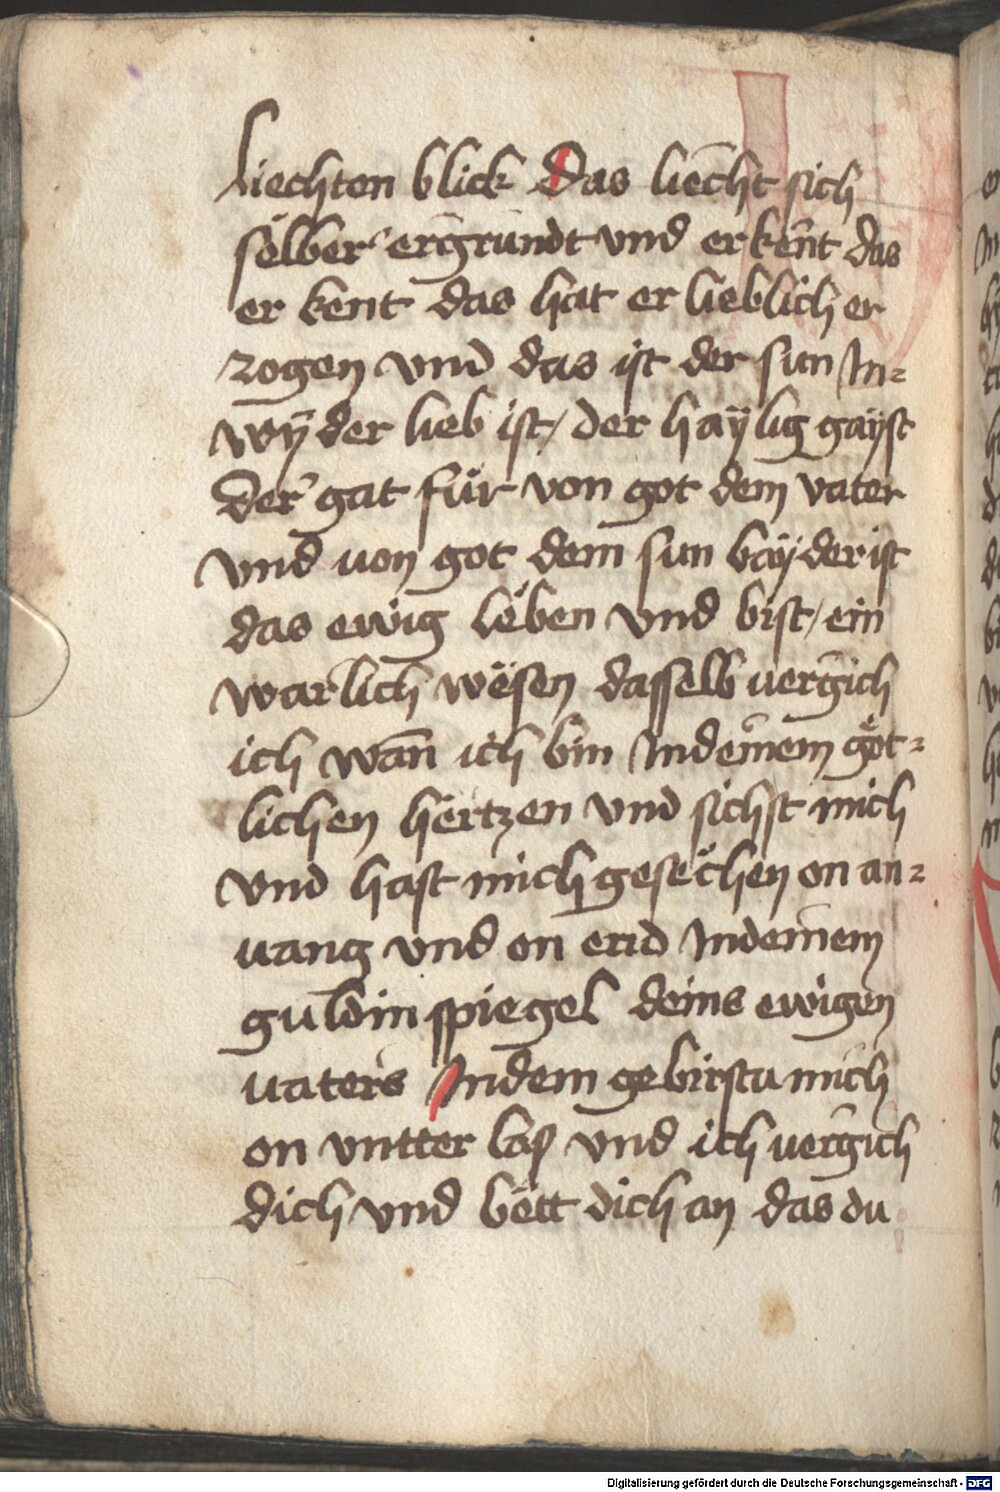 liechten blick Das liecht sich
selber ergrundt vnd erkent das
er kent das hat er lieblich er
zogen vnd das ist der sun In-
wÿ der lieb ist / der haÿlig gaÿst
Der gat für von got dem vater
vnd von got dem sun baÿder ist
das ewig leben vnd bist / ein
warlich wesen dasselb vergich
ich wan ich bin In deinem göt-
lichen hertzen vnd sichst mich
vnd hast mich gesechen on an-
uang vnd on end In deinem
guldin spiegel deins ewigen
uaters Indem gebirstu mich
on vntter lasß vnd ich uergich
dich vnd bett dich an das du
Digitalisierung gefördert durch die Deutsche Forschungsgemeinschaft - DFG